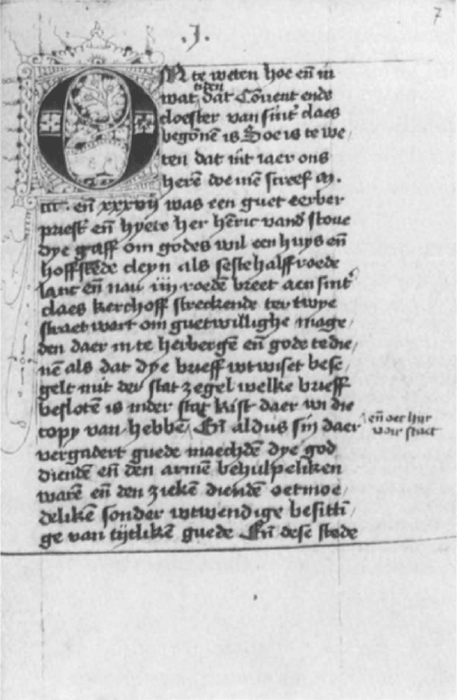 7
.J.
OM te weten hoe en̄ in
wat tiden dat Cōuent ende
cloester van sint claes
begōnē is Soe is te we
ten dat int iaer ons
herē doe mē screef M.
cccc en̄ xxxvij was een guet eerber
priest en̄ hyete her hēric vand stoue
dye gaff om godes wil een huys en̄
hoffstede cleyn als sestehalff roede
lanc en̄ nau iiij roede breet aen sint
claes kerchoff streckende ter twye
straet wart om guetwillighe mage/
den daer in te herbergē en̄ gode te die/
nē als dat dye brieff wtwiset bese/
gelt mit der stat zegel welke brieff
beslotē is inder stat kist daer wi die
copy van hebbē En̄ aldus sin daer
en̄ oer hyr
voir staet
vergadert guede maechden dye god
diendē en̄ den armē behulpeliken
warē en̄ den ziekē diendē oetmoe/
delikē sonder wtwendige besitti/
ge van tijtlikē guede En̄ dese stede